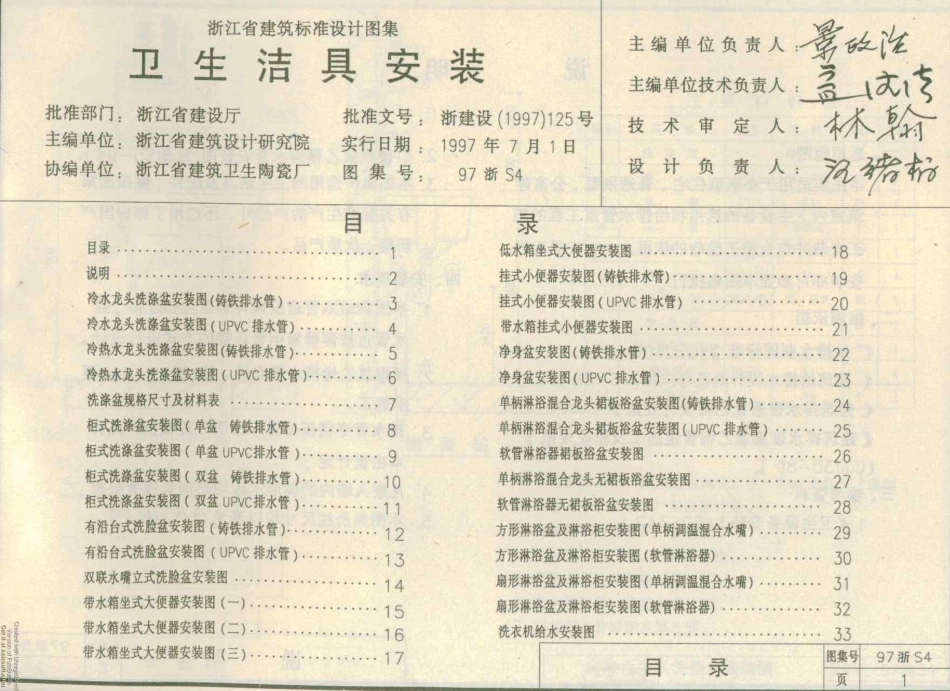 浙江省建筑标准设计图集
卫生洁具安装
批准部门：浙江省建设厅
批准文号：浙建设(1997)125号
主编单位：浙江省建筑设计研究院
实行日期：1997年7月1日
协编单位：浙江省建筑卫生陶瓷厂
图集号：97浙S4
主编单位负责人：
主编单位技术负责人：
技术审定人：林翰
设计负责人：
目录
目录 1
说明 2
冷水龙头洗涤盆安装图(铸铁排水管) 3
冷水龙头洗涤盆安装图(UPVC排水管) 4
冷热水龙头洗涤盆安装图(铸铁排水管) 5
冷热水龙头洗涤盆安装图(UPVC排水管) 6
洗涤盆规格尺寸及材料表 7
柜式洗涤盆安装图(单盆 铸铁排水管) 8
柜式洗涤盆安装图(单盆UPVC排水管) 9
柜式洗涤盆安装图(双盆 铸铁排水管) 10
柜式洗涤盆安装图(双盆UPVC排水管) 11
有沿台式洗脸盆安装图(铸铁排水管) 12
有沿台式洗脸盆安装图(UPVC排水管) 13
双联水嘴立式洗脸盆安装图 14
带水箱坐式大便器安装图(一) 15
带水箱坐式大便器安装图(二) 16
带水箱坐式大便器安装图(三) 17
低水箱坐式大便器安装图 18
挂式小便器安装图(铸铁排水管) 19
挂式小便器安装图(UPVC排水管) 20
带水箱挂式小便器安装图 21
净身盆安装图(铸铁排水管) 22
净身盆安装图(UPVC排水管) 23
单柄淋浴混合龙头裙板浴盆安装图(铸铁排水管) 24
单柄淋浴混合龙头裙板浴盆安装图(UPVC排水管) 25
软管淋浴器裙板浴盆安装图 26
单柄淋浴混合龙头无裙板浴盆安装图 27
软管淋浴器无裙板浴盆安装图 28
方形淋浴盆及淋浴柜安装图(单柄调温混合水嘴) 29
方形淋浴盆及淋浴柜安装图(软管淋浴器) 30
扇形淋浴盆及淋浴柜安装图(单柄调温混合水嘴) 31
扇形淋浴盆及淋浴柜安装图(软管淋浴器) 32
洗衣机给水安装图 33
目录
图集号 97浙S4
页 1